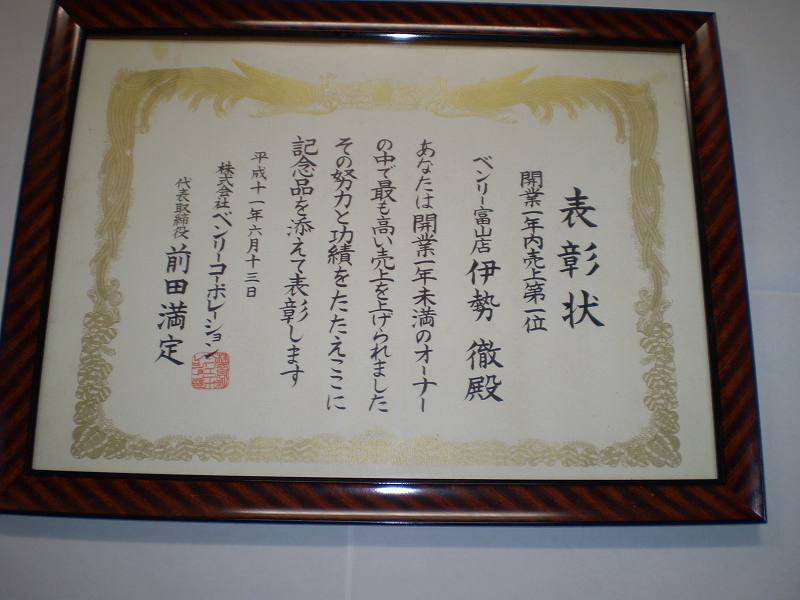 表彰状
開業一年内売上第一位
ベンリー富山店 伊勢 徹殿
あなたは開業一年未満のオーナー
の中で最も高い売上を上げられました
その努力と功績をたたえここに
記念品を添えて表彰します
平成十一年六月十三日
株式会社ベンリーコーポレーション
代表取締役 前田満定